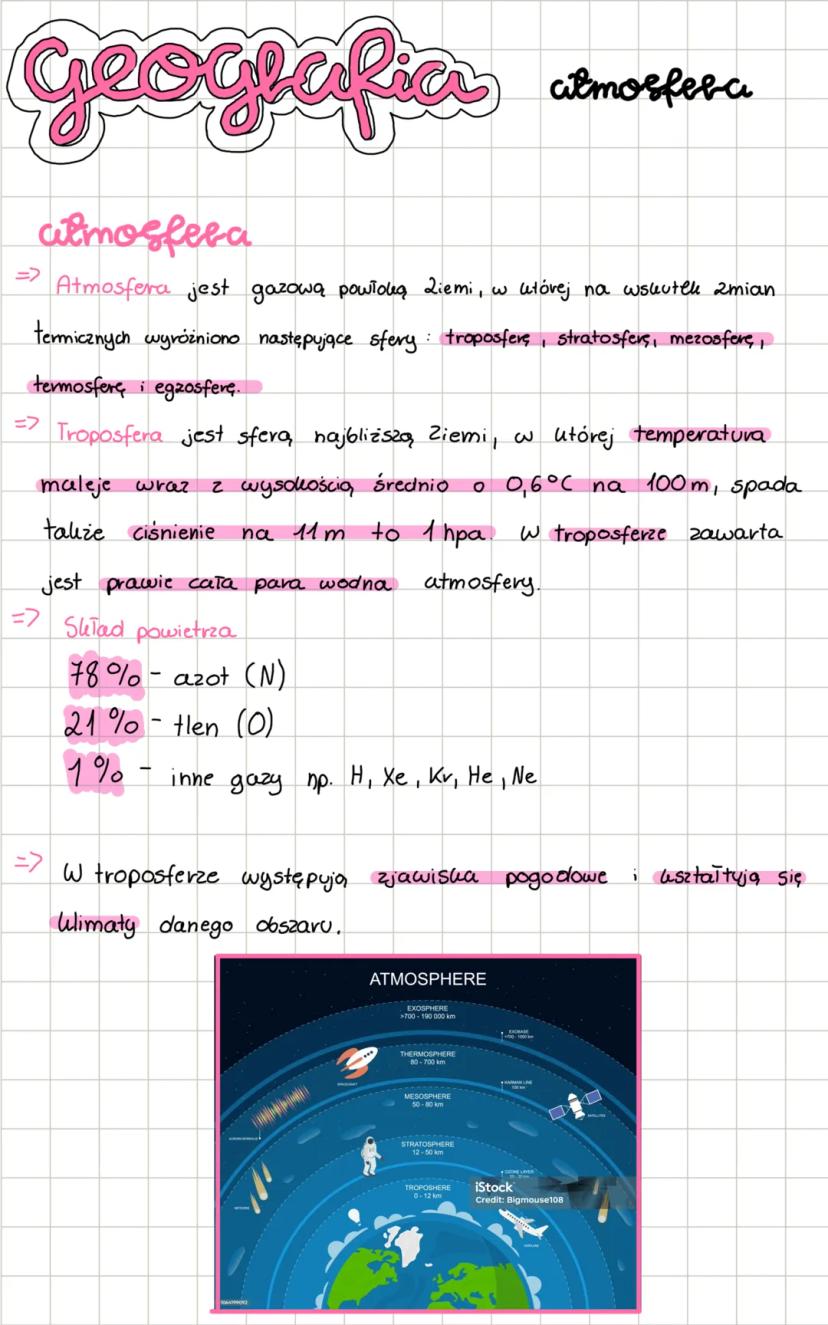 Geografia
atmosfera
atmosfera
=> Atmosfera jest gazową powłoką Ziemi, w której na wskutek zmian
termicznych wyróżniono następujące sfery: troposferę, stratosferę, mezosferę,
termosferę i egzosferę.
=> Troposfera jest sferą najbliższą Ziemi, w której temperatura
maleje wraz z wysokością średnio o 0,6°C na 100m, spada
także ciśnienie na 11m to 1hpa. W troposferze zawarta
jest prawie cała para wodna atmosfery.
=> Skład powietrza
78% - azot (N)
21% - tlen (O)
1% - inne gazy np. H, Xe, Kr, He, Ne
=> W troposferze występują zjawiska pogodowe i kształtują się
klimaty danego obszaru.
ATMOSPHERE
EXOSPHERE
>700 - 190 000 km
EXOBASE
>700 - 1000 km
THERMOSPHERE
80 - 700 km
SPACECRAFT
KARMAN LINE
100 km
MESOSPHERE
50 - 80 km
SATELLITES
STRATOSPHERE
12 - 50 km
OZONE LAYER
METEORS
TROPOSHERE
0 - 12 km
iStock
Credit: Bigmouse108
AIRPLANE